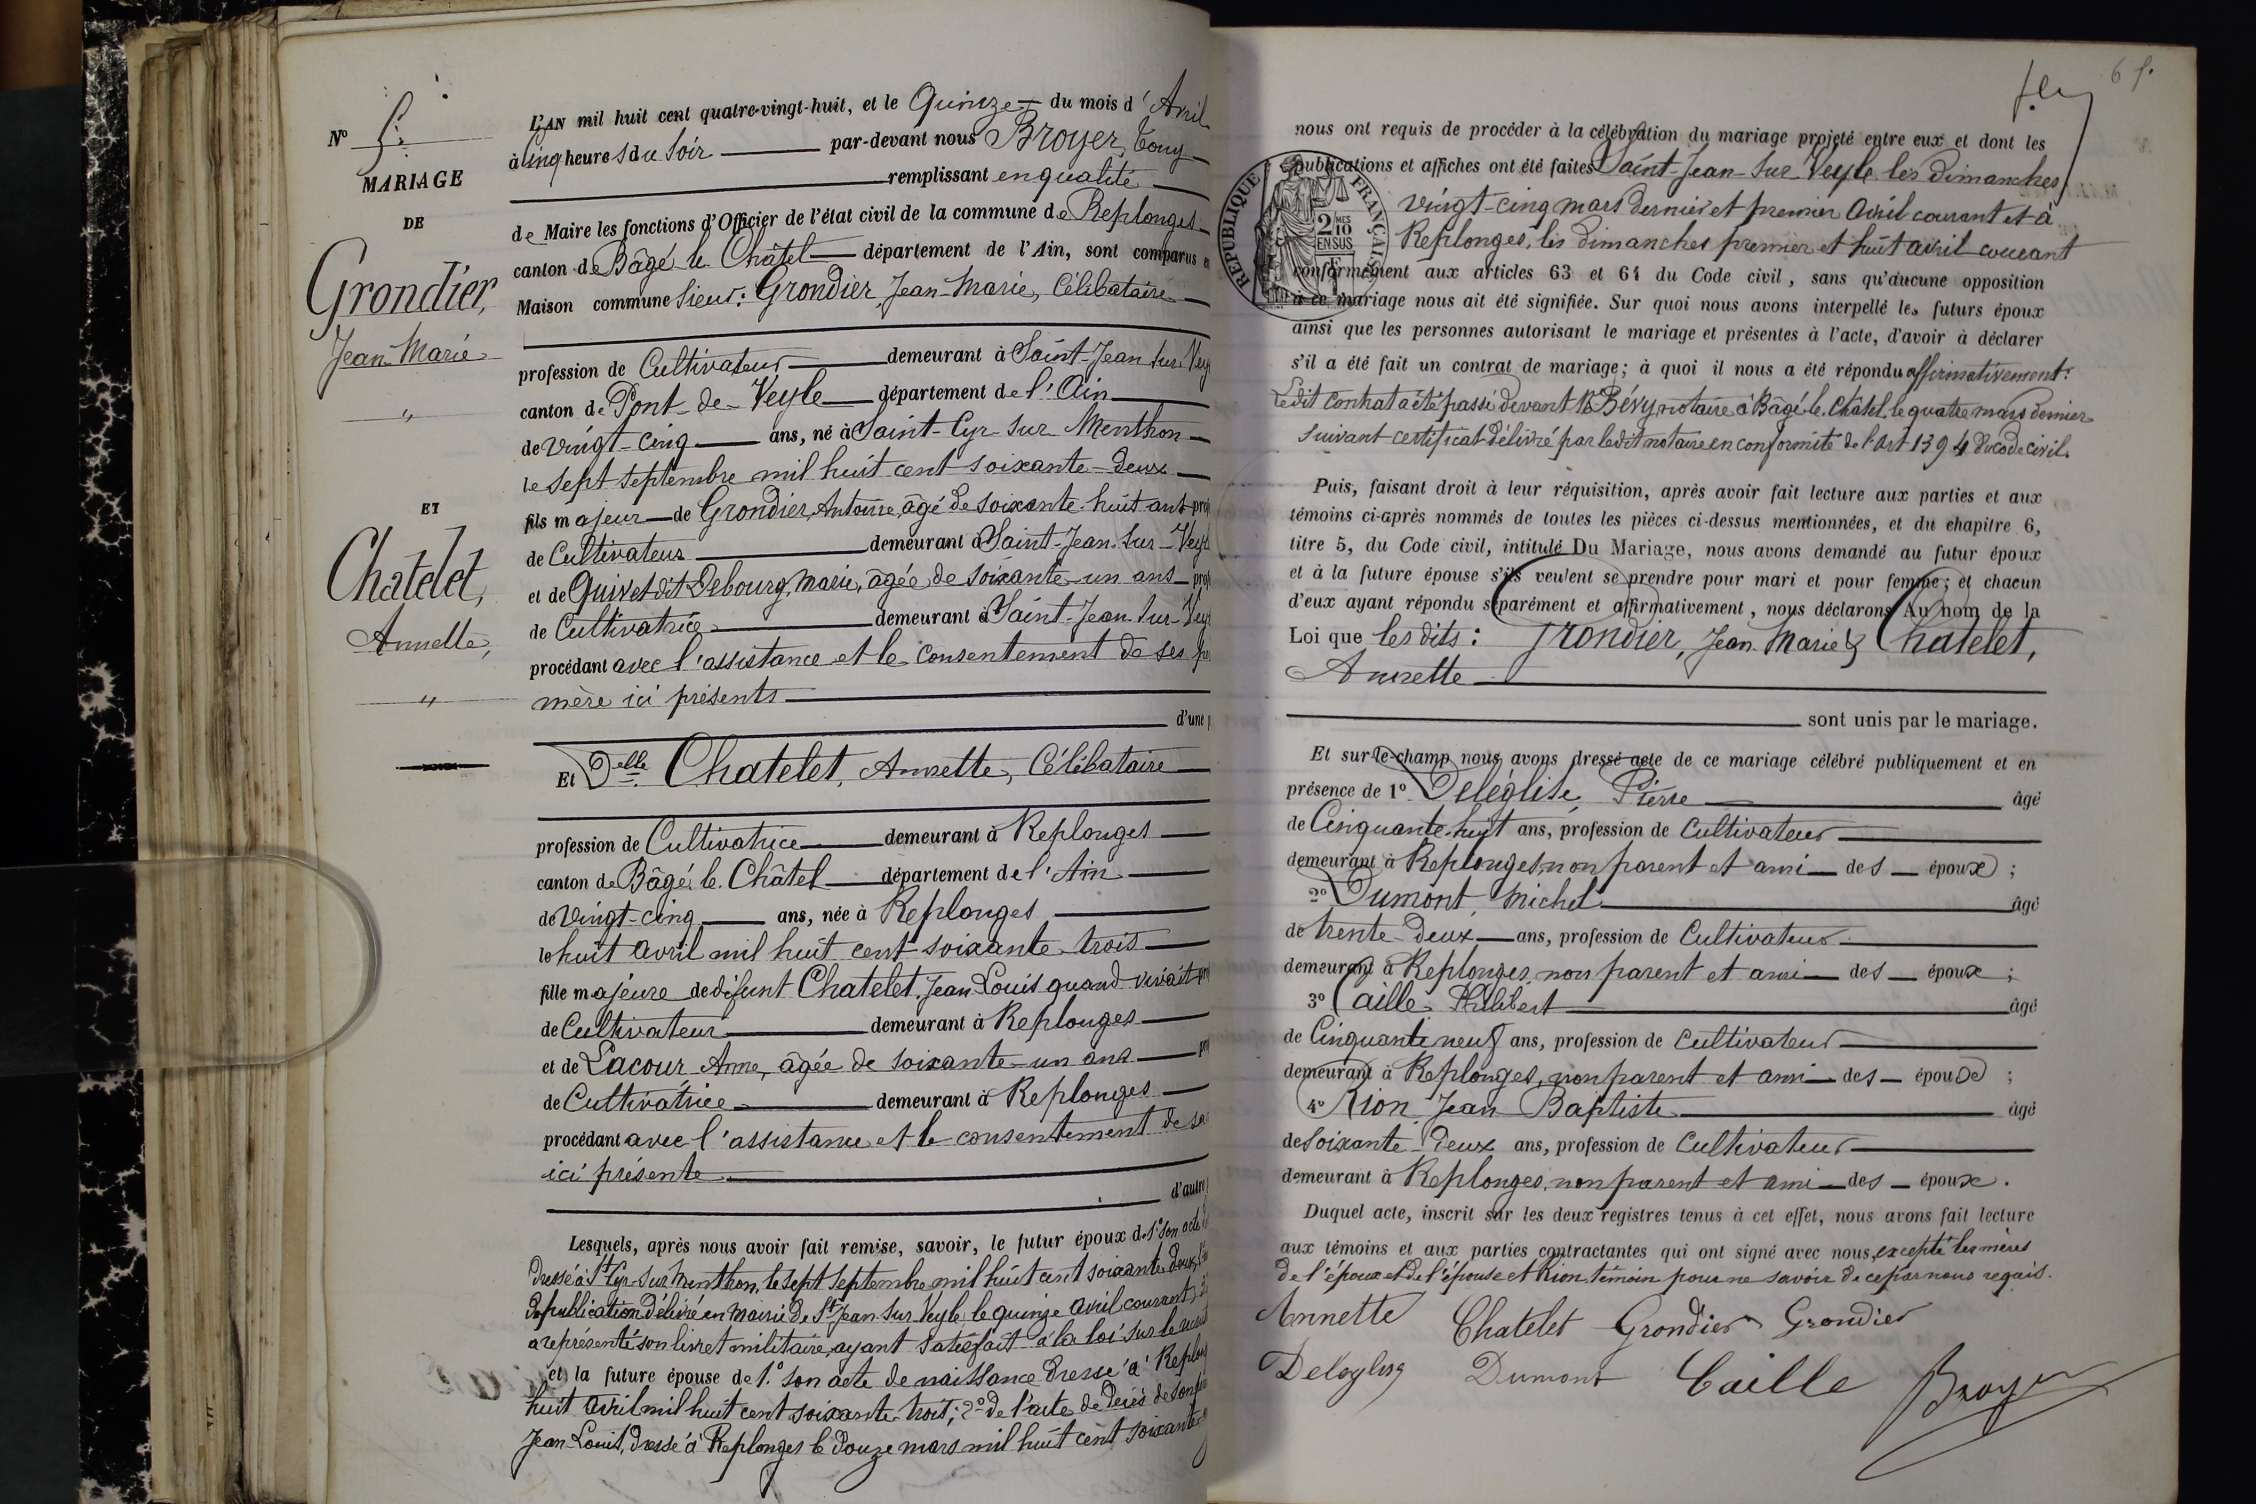 N° 5.
MARIAGE
DE
Grondier,
Jean-Marie
"
ET
Chatelet,
Annette,
"
L'AN mil huit cent quatre-vingt-huit, et le Quinze du mois d'Avril
à Cinq heures du soir par-devant nous Broyer, Tony
remplissant en qualité
de Maire les fonctions d'Officier de l'état civil de la commune de Replonges
canton de Bâgé-le-Châtel département de l'Ain, sont comparus en
Maison commune Sieur: Grondier, Jean-Marie, Célibataire
profession de Cultivateur demeurant à Saint-Jean-sur-Vey
canton de Pont-de-Veyle département de l'Ain
de vingt-cinq ans, né à Saint-Cyr-sur-Menthon
le sept septembre mil huit cent soixante-deux
fils majeur de Grondier, Antoine, âgé de soixante-huit ans prof
de Cultivateur demeurant à Saint-Jean-sur-Veyl
et de Guivet dit Debourg, Marie, âgée de soixante-un ans prof
de Cultivatrice demeurant à Saint-Jean-sur-Vey
procédant avec l'assistance et le consentement de ses
mère ici présents
d'une p
Et Delle Chatelet, Annette, Célibataire
profession de Cultivatrice demeurant à Replonges
canton de Bâgé-le-Châtel département de l'Ain
de Vingt-cinq ans, née à Replonges
le huit avril mil huit cent soixante-trois
fille majeure de défunt Chatelet, Jean-Louis quand vivait
de Cultivateur demeurant à Replonges
et de Lacour Anne, âgée de soixante-un ans
de Cultivatrice demeurant à Replonges
procédant avec l'assistance et le consentement de sa
ici présente
d'autre
Lesquels, après nous avoir fait remise, savoir, le futur époux de 1° son acte
dressé à St Cyr-sur-Menthon, le sept septembre mil huit cent soixante-deux,
de publication délivré en mairie de St Jean-sur-Veyle, le quinze avril courant,
a représenté son livret militaire, ayant satisfait à la loi sur le
et la future épouse de 1°. son acte de naissance dressé à Replon
huit avril mil huit cent soixante-trois; 2° de l'acte de décès de son
Jean-Louis, dressé à Replonges le douze mars mil huit cent soixante
65.
nous ont requis de procéder à la célébration du mariage projeté entre eux et dont les
publications et affiches ont été faites Saint-Jean-sur-Veyle les dimanches
vingt-cinq mars dernier et premier avril courant et à
Replonges, les dimanches premier et huit avril courant
conformément aux articles 63 et 64 du Code civil, sans qu'aucune opposition
à ce mariage nous ait été signifiée. Sur quoi nous avons interpellé les futurs époux
ainsi que les personnes autorisant le mariage et présentes à l'acte, d'avoir à déclarer
s'il a été fait un contrat de mariage; à quoi il nous a été répondu affirmativement.
Ledit contrat a été passé devant Me Bévy, notaire à Bâgé-le-Châtel, le quatre mars dernier
suivant certificat délivré par ledit notaire en conformité de l'art 1394 du code civil.
RÉPUBLIQUE FRANÇAISE
2/10 MES
EN SUS
Puis, faisant droit à leur réquisition, après avoir fait lecture aux parties et aux
témoins ci-après nommés de toutes les pièces ci-dessus mentionnées, et du chapitre 6,
titre 5, du Code civil, intitulé Du Mariage, nous avons demandé au futur époux
et à la future épouse s'ils veulent se prendre pour mari et pour femme; et chacun
d'eux ayant répondu séparément et affirmativement, nous déclarons Au nom de la
Loi que les dits: Grondier, Jean-Marie & Chatelet,
Annette
sont unis par le mariage.
Et sur-le-champ nous avons dressé acte de ce mariage célébré publiquement et en
présence de 1° Deléglise, Pierre âgé
de Cinquante-huit ans, profession de Cultivateur
demeurant à Replonges, non parent et ami des époux;
2° Dumont, Michel âgé
de trente-deux ans, profession de Cultivateur
demeurant à Replonges, non parent et ami des époux;
3° Caille, Philibert âgé
de Cinquante neuf ans, profession de Cultivateur
demeurant à Replonges, non parent et ami des époux;
4° Rion Jean Baptiste âgé
de soixante-deux ans, profession de Cultivateur
demeurant à Replonges, non parent et ami des époux.
Duquel acte, inscrit sur les deux registres tenus à cet effet, nous avons fait lecture
aux témoins et aux parties contractantes qui ont signé avec nous, excepté les mères
de l'époux et de l'épouse et Rion témoin pour ne savoir de ce par nous requis.
Annette Chatelet Grondier Grondier
Dumont Caille Broyer